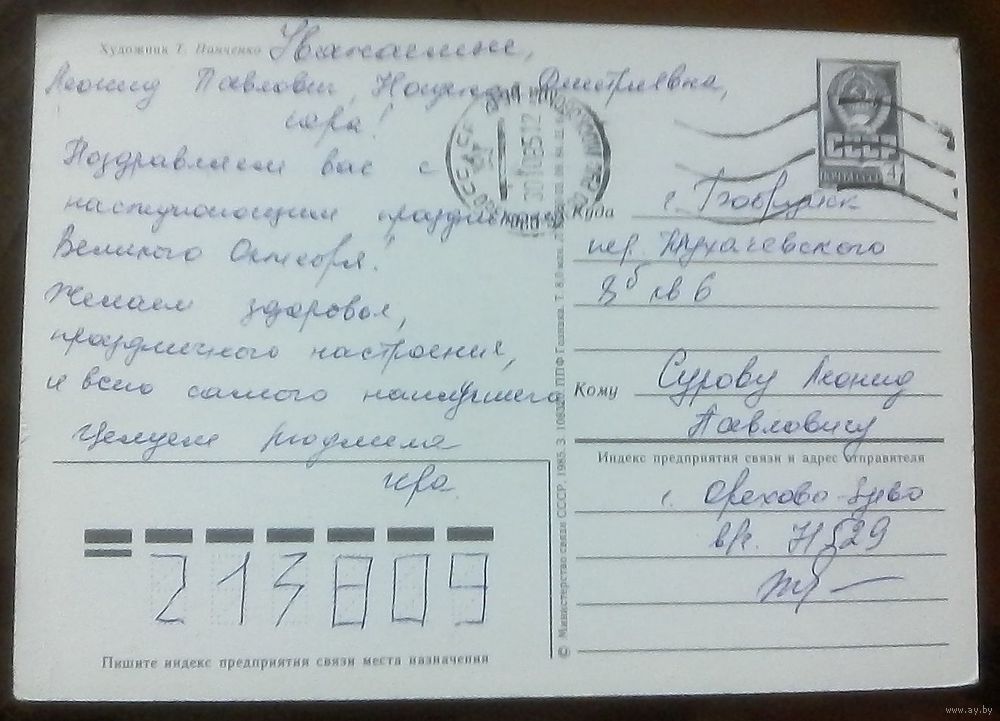 Художник Т. Панченко
Уважаемые,
Леонид Павлович, Дмитриевна,
Ира!
Поздравляем вас с
наступающим праздником
Великого Октября!
Желаем здоровья,
праздничного настроения,
и всего самого наилучшего
Целуем Людмила
Ира
213809
Пишите индекс предприятия связи места назначения
СССР
ПОЧТА СССР 4
30 10 85 12
Куда г. Бобруйск
пер. Тухачевского
8б кв 6
Кому Сурову Леонид
Павловичу
Индекс предприятия связи и адрес отправителя
г. Орехово-Зуево
© Министерство связи СССР. 1985. З. ППФ Гознака.
www.ay.by